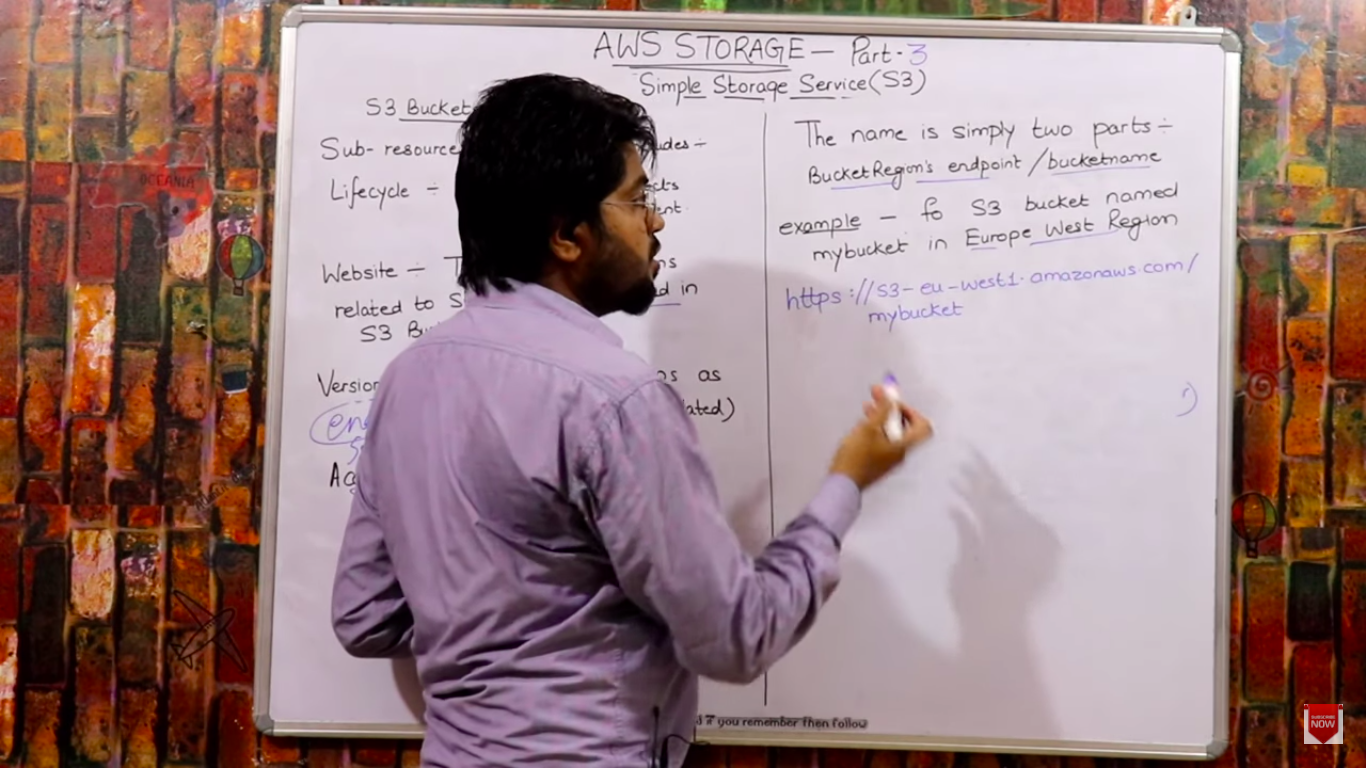 AWS STORAGE — Part-3
Simple Storage Service(S3)
S3 Bucket
Sub-resource
Lifecycle ÷
Website —
related to S in
S3
The name is simply two parts ÷
BucketRegion's endpoint /bucketname
example — fo S3 bucket named
mybucket in Europe West Region
https://s3-eu-west1.amazonaws.com/
mybucket
as
you remember then follow
OCEANIA
SUBSCRIBE
NOW